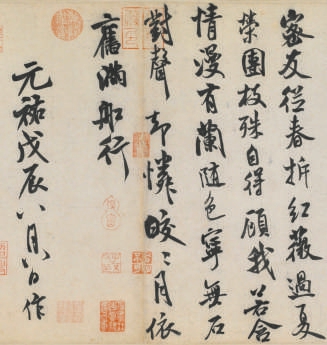 密友從春拆紅薇過夏
榮團枝殊自得顧我若含
情漫有蘭隨色寧無石
對聲却憐皎〻月依
舊滿船行
元祐戊辰八月八日作